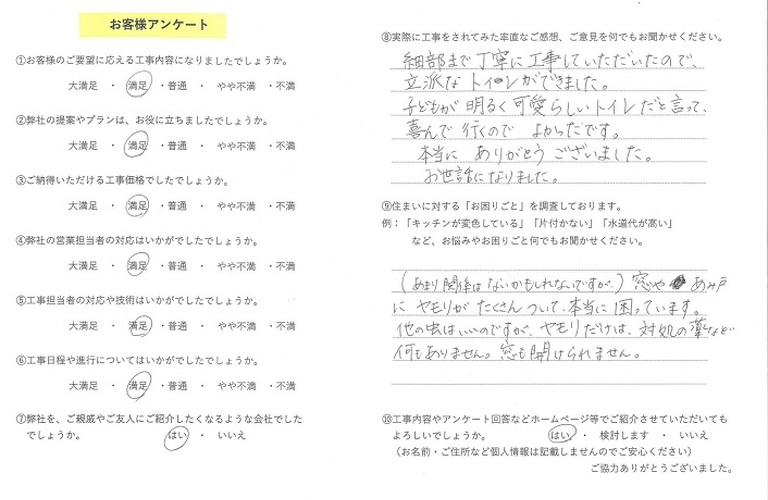 お客様アンケート
①お客様のご要望に応える工事内容になりましたでしょうか。
大満足 ・ 満足 ・普通 ・ やや不満 ・不満
②弊社の提案やプランは、お役に立ちましたでしょうか。
大満足 ・ 満足 ・普通 ・ やや不満 ・不満
③ご納得いただける工事価格でしたでしょうか。
大満足 ・ 満足 ・普通 ・ やや不満 ・不満
④弊社の営業担当者の対応はいかがでしたでしょうか。
大満足 ・ 満足 ・普通 ・ やや不満 ・不満
⑤工事担当者の対応や技術はいかがでしたでしょうか。
大満足 ・ 満足 ・普通 ・ やや不満 ・不満
⑥工事日程や進行についてはいかがでしたでしょうか。
大満足 ・ 満足 ・普通 ・ やや不満 ・不満
⑦弊社を、ご親戚やご友人にご紹介したくなるような会社でした
でしょうか。 はい ・ いいえ
⑧実際に工事をされてみた率直なご感想、ご意見を何でもお聞かせください。
細部まで丁寧に工事していただいたので、
立派なトイレができました。
子どもが明るく可愛らしいトイレだと言って、
喜んで行くので よかったです。
本当に ありがとうございました。
お世話になりました。
⑨住まいに対する「お困りごと」を調査しております。
例：「キッチンが変色している」「片付かない」「水道代が高い」
など、お悩みやお困りごと何でもお聞かせください。
(あまり関係はないかもしれないんですが。) 窓や あみ戸
に ヤモリが たくさん ついて、本当に 困っています。
他の虫はいいのですが、ヤモリだけは、対処の薬など
何もありません。窓も開けられません。
⑩工事内容やアンケート回答などホームページ等でご紹介させていただいても
よろしいでしょうか。 はい ・ 検討します ・ いいえ
（お名前・ご住所など個人情報は記載しませんのでご安心ください）
ご協力ありがとうございました。